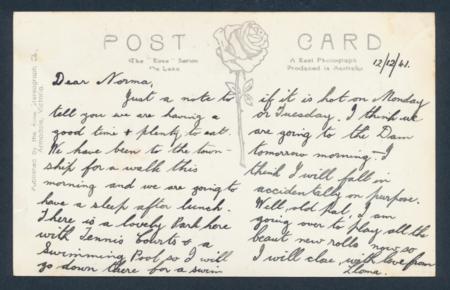 POST CARD
The "Rose" Series
De Luxe
A Real Photograph
Produced in Australia
Published by the Rose Stereograph Co.
Armadale, Victoria.
12/12/41.
Dear Norma,
Just a note to
tell you we are having a
good time & plenty to eat.
We have been to the town-
ship for a walk this
morning and we are going to
have a sleep after lunch.
There is a lovely Park here
with Tennis Courts & a
Swimming Pool so I will
go down there for a swim
if it is hot on Monday
or Tuesday. I think we
are going to the Dam
tomorrow morning - I
think I will fall in
accidentally on purpose.
Well, old Pal, I am
going over to play all the
beaut new rolls now so
I will close, with love from